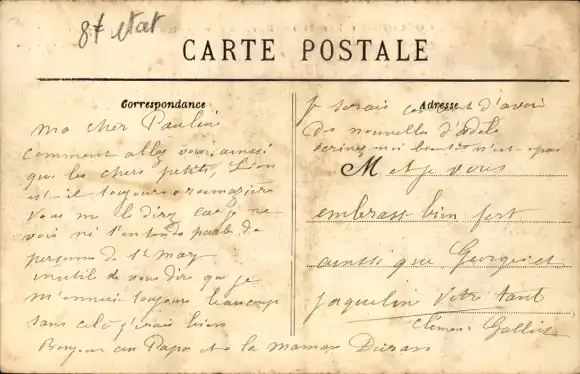 87 etat
CARTE POSTALE
Correspondance
Adresse
ma cher Pauline
comment allez vous ainssi
que les chers petits, Léon
est-il toujours a romazière
vous me le direz car je ne
vois ni n'entends parle de
personne de St mary
inutil de vous dire que je
m'ennuie toujours beaucoup
sans cela j'irais bien
Bonjour au Papa et a la maman Durans
Je serais content d'avoir
des nouvelles d'adèle
écrivez moi bientôt n'est-ce pas
M et je vous
embrasse bien fort
ainssi que Georges et
jaquelin Votre tant
Clémence Gallois